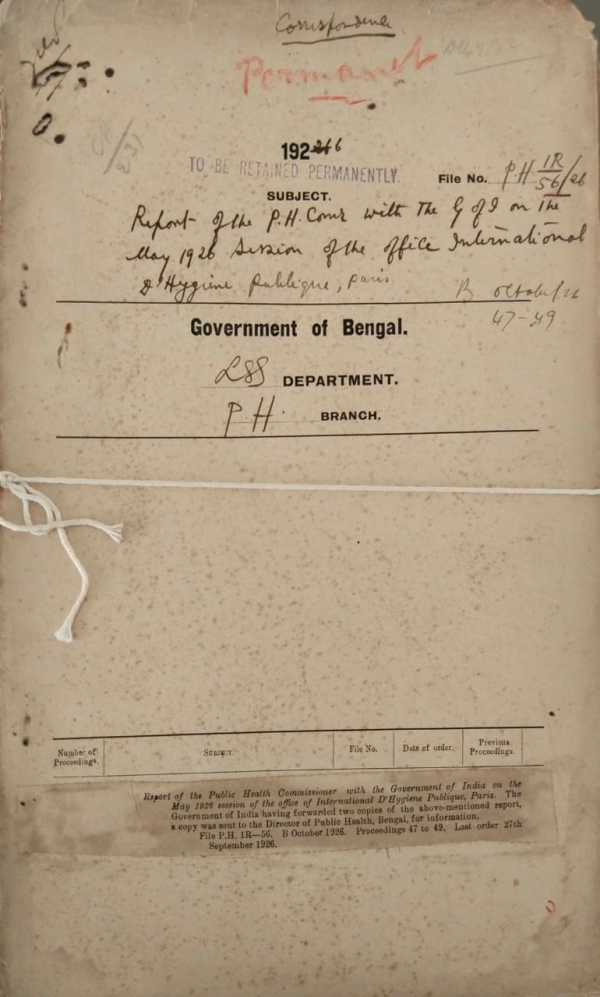 Correspondence
Permanent
1926
TO BE RETAINED PERMANENTLY.
File No. PH 1R/56/26
SUBJECT.
Report of the P.H. Comr with the G of I on the
May 1926 Session of the office International
D'Hygine Publique, Paris
B. October/26
47-49
Government of Bengal.
LSG DEPARTMENT.
P.H. BRANCH.
Number of Proceedings.
SUBJECT.
File No.
Date of order.
Previous Proceedings.
Report of the Public Health Commissioner with the Government of India on the
May 1926 session of the office of International D'Hygiene Publique, Paris. The
Government of India having forwarded two copies of the above-mentioned report,
a copy was sent to the Director of Public Health, Bengal, for information.
File P.H. 1R—56. B October 1926. Proceedings 47 to 49. Last order 27th
September 1926.